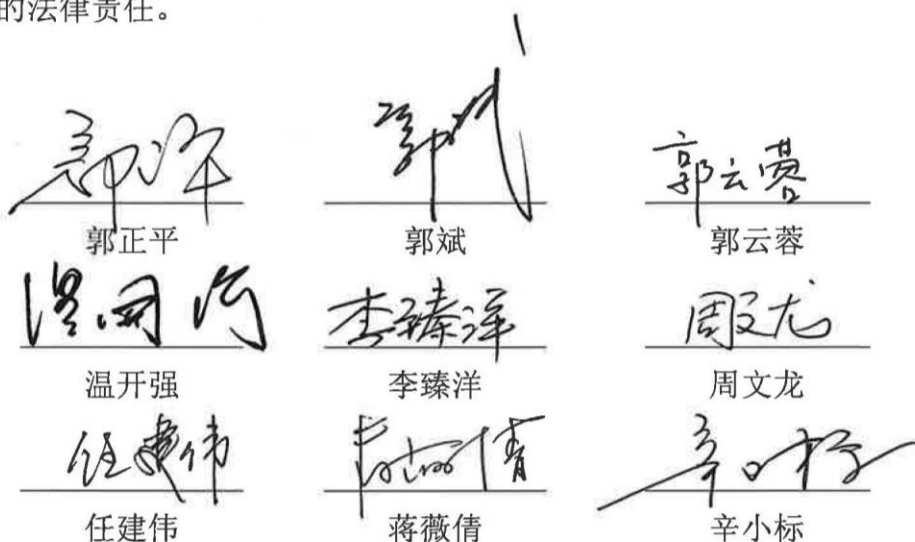 的法律责任。
郭正平 郭斌 郭云蓉
郭正平 郭斌 郭云蓉
温开强 李臻洋 周文龙
温开强 李臻洋 周文龙
任建伟 蒋薇倩 辛小标
任建伟 蒋薇倩 辛小标